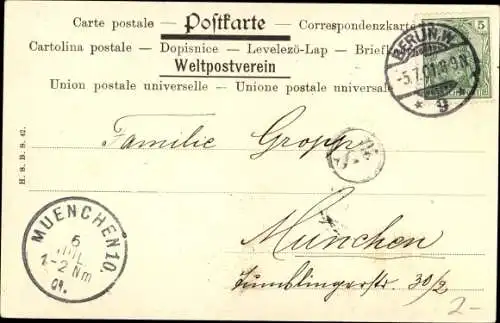 Carte postale — Postkarte — Correspondenzkarte
Cartolina postale — Dopisnice — Levelező-Lap — Briefk
Weltpostverein
Union postale universelle — Unione postale universale
5
BERLIN.W.
-5.7.01.8-9N.
* 9
Familie Gropp
H. S. B. S. 42.
München
Tumblingerstr. 30/2
MUENCHEN 10.
6
JUL.
1-2 Nm
01.
2-